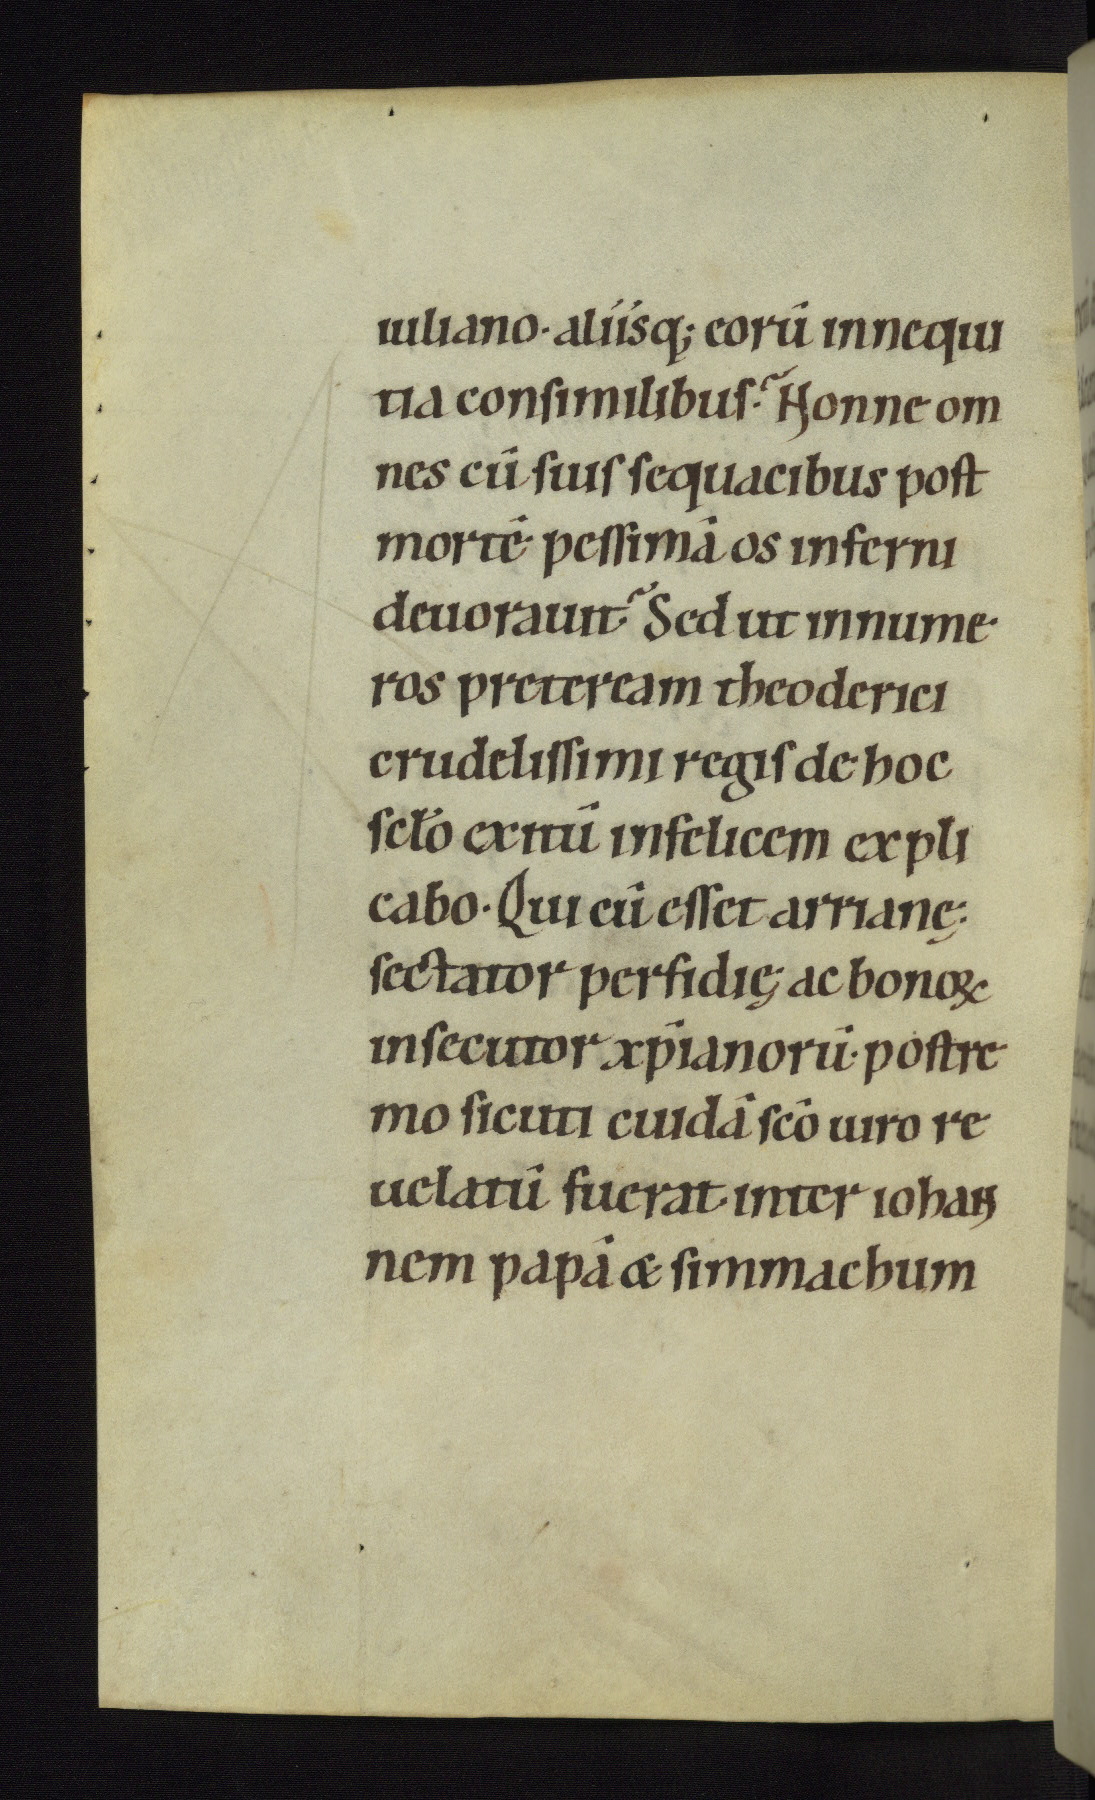 iuliano· aliisq; eorū in nequi
tia consimilibus? Nonne om
nes cū suis sequacibus post
mortē pessimā os inferni
deuorauit? Sed ut innume
ros preteream theoderici
crudelissimi regis de hoc
sc̄lo exitū infelicem expli
cabo· Qui cū esset arrianę
sectator perfidię ac bonoꝝ
insecutor xp̄ianorū· postre
mo sicuti cuidā sc̄o uiro re
uelatū fuerat inter iohan
nem papā & simmachum